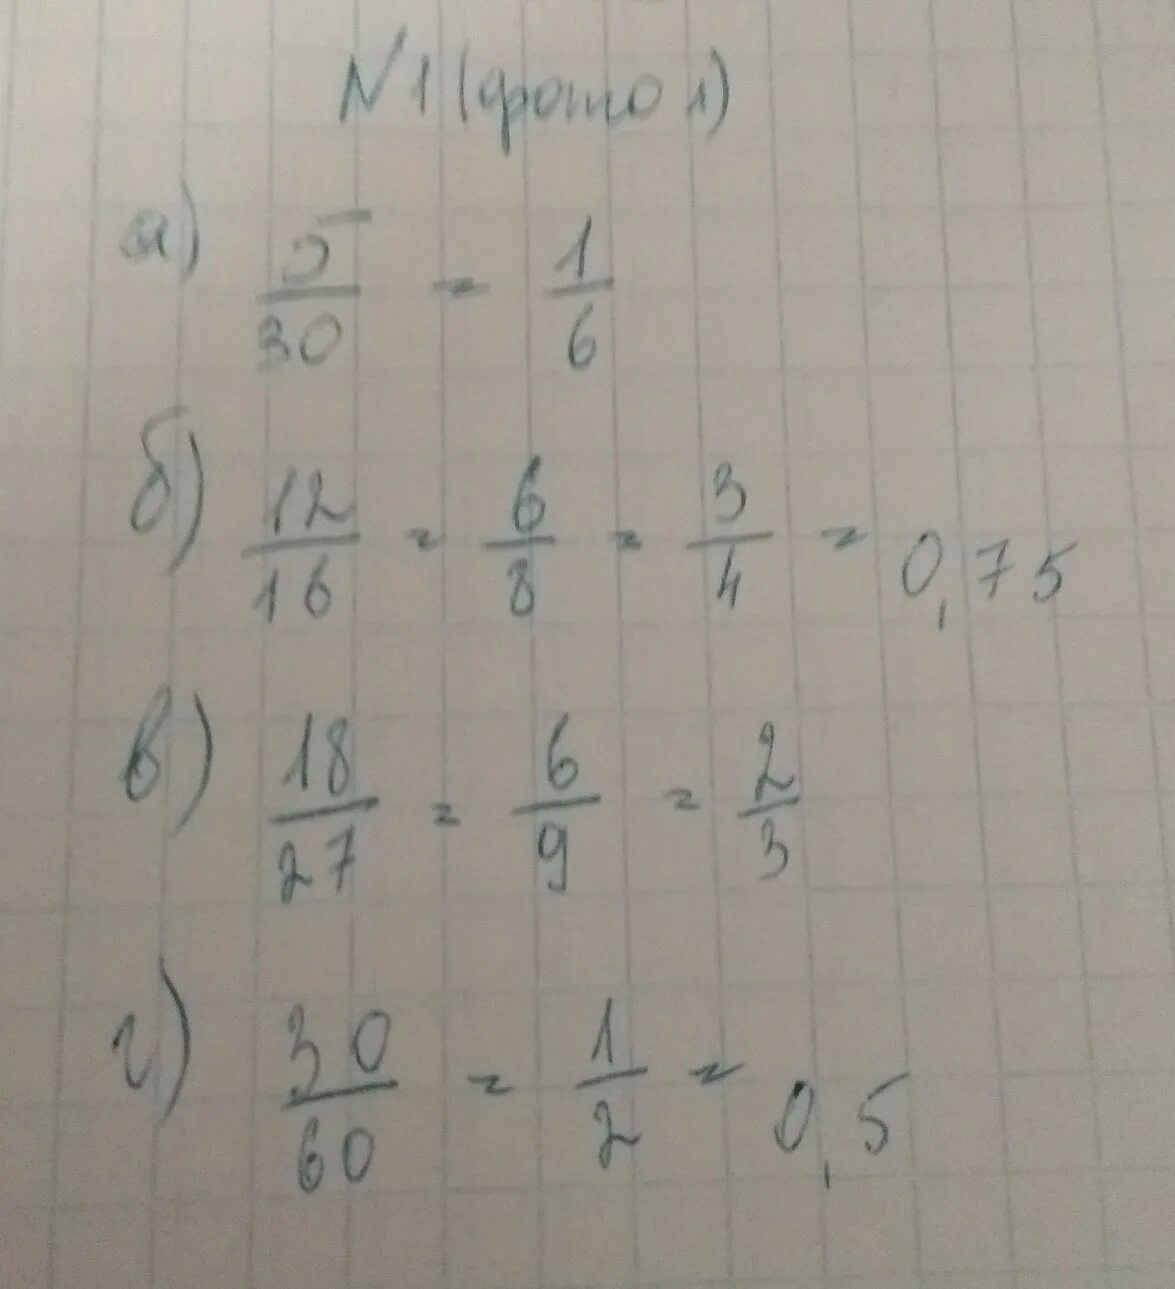 N1 (фото 1)
а) 5/30 = 1/6
б) 12/16 = 6/8 = 3/4 = 0,75
в) 18/27 = 6/9 = 2/3
г) 30/60 = 1/2 = 0,5